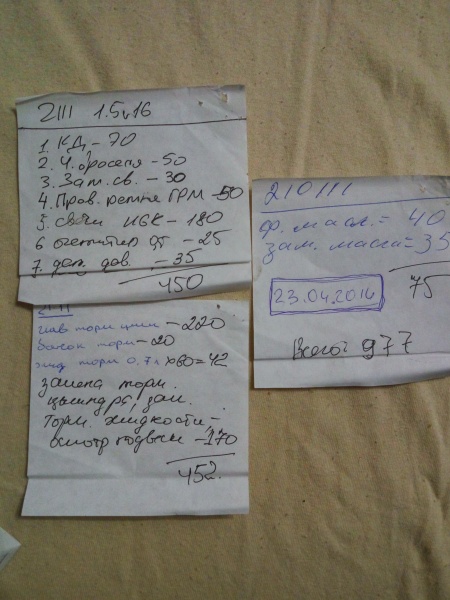 2111 1.5 v16
1. КД - 70
2. Ч. дросселя - 50
3. Зам. св. - 30
4. Пров. ремня ГРМ - 50
5. свечи NGK - 180
6 - 25
7. дат. дав. - 35
450
2111
глав торм цилин - 220
бачок торм - 20
жид торм 0.7л х60=42
замена торм.
цылиндра, зам.
торм. жидкости -
осмотр подвески - 170
452.
210111
ф. масл. = 40
зам. масла = 35
75
23.04.2016
Всего: 977